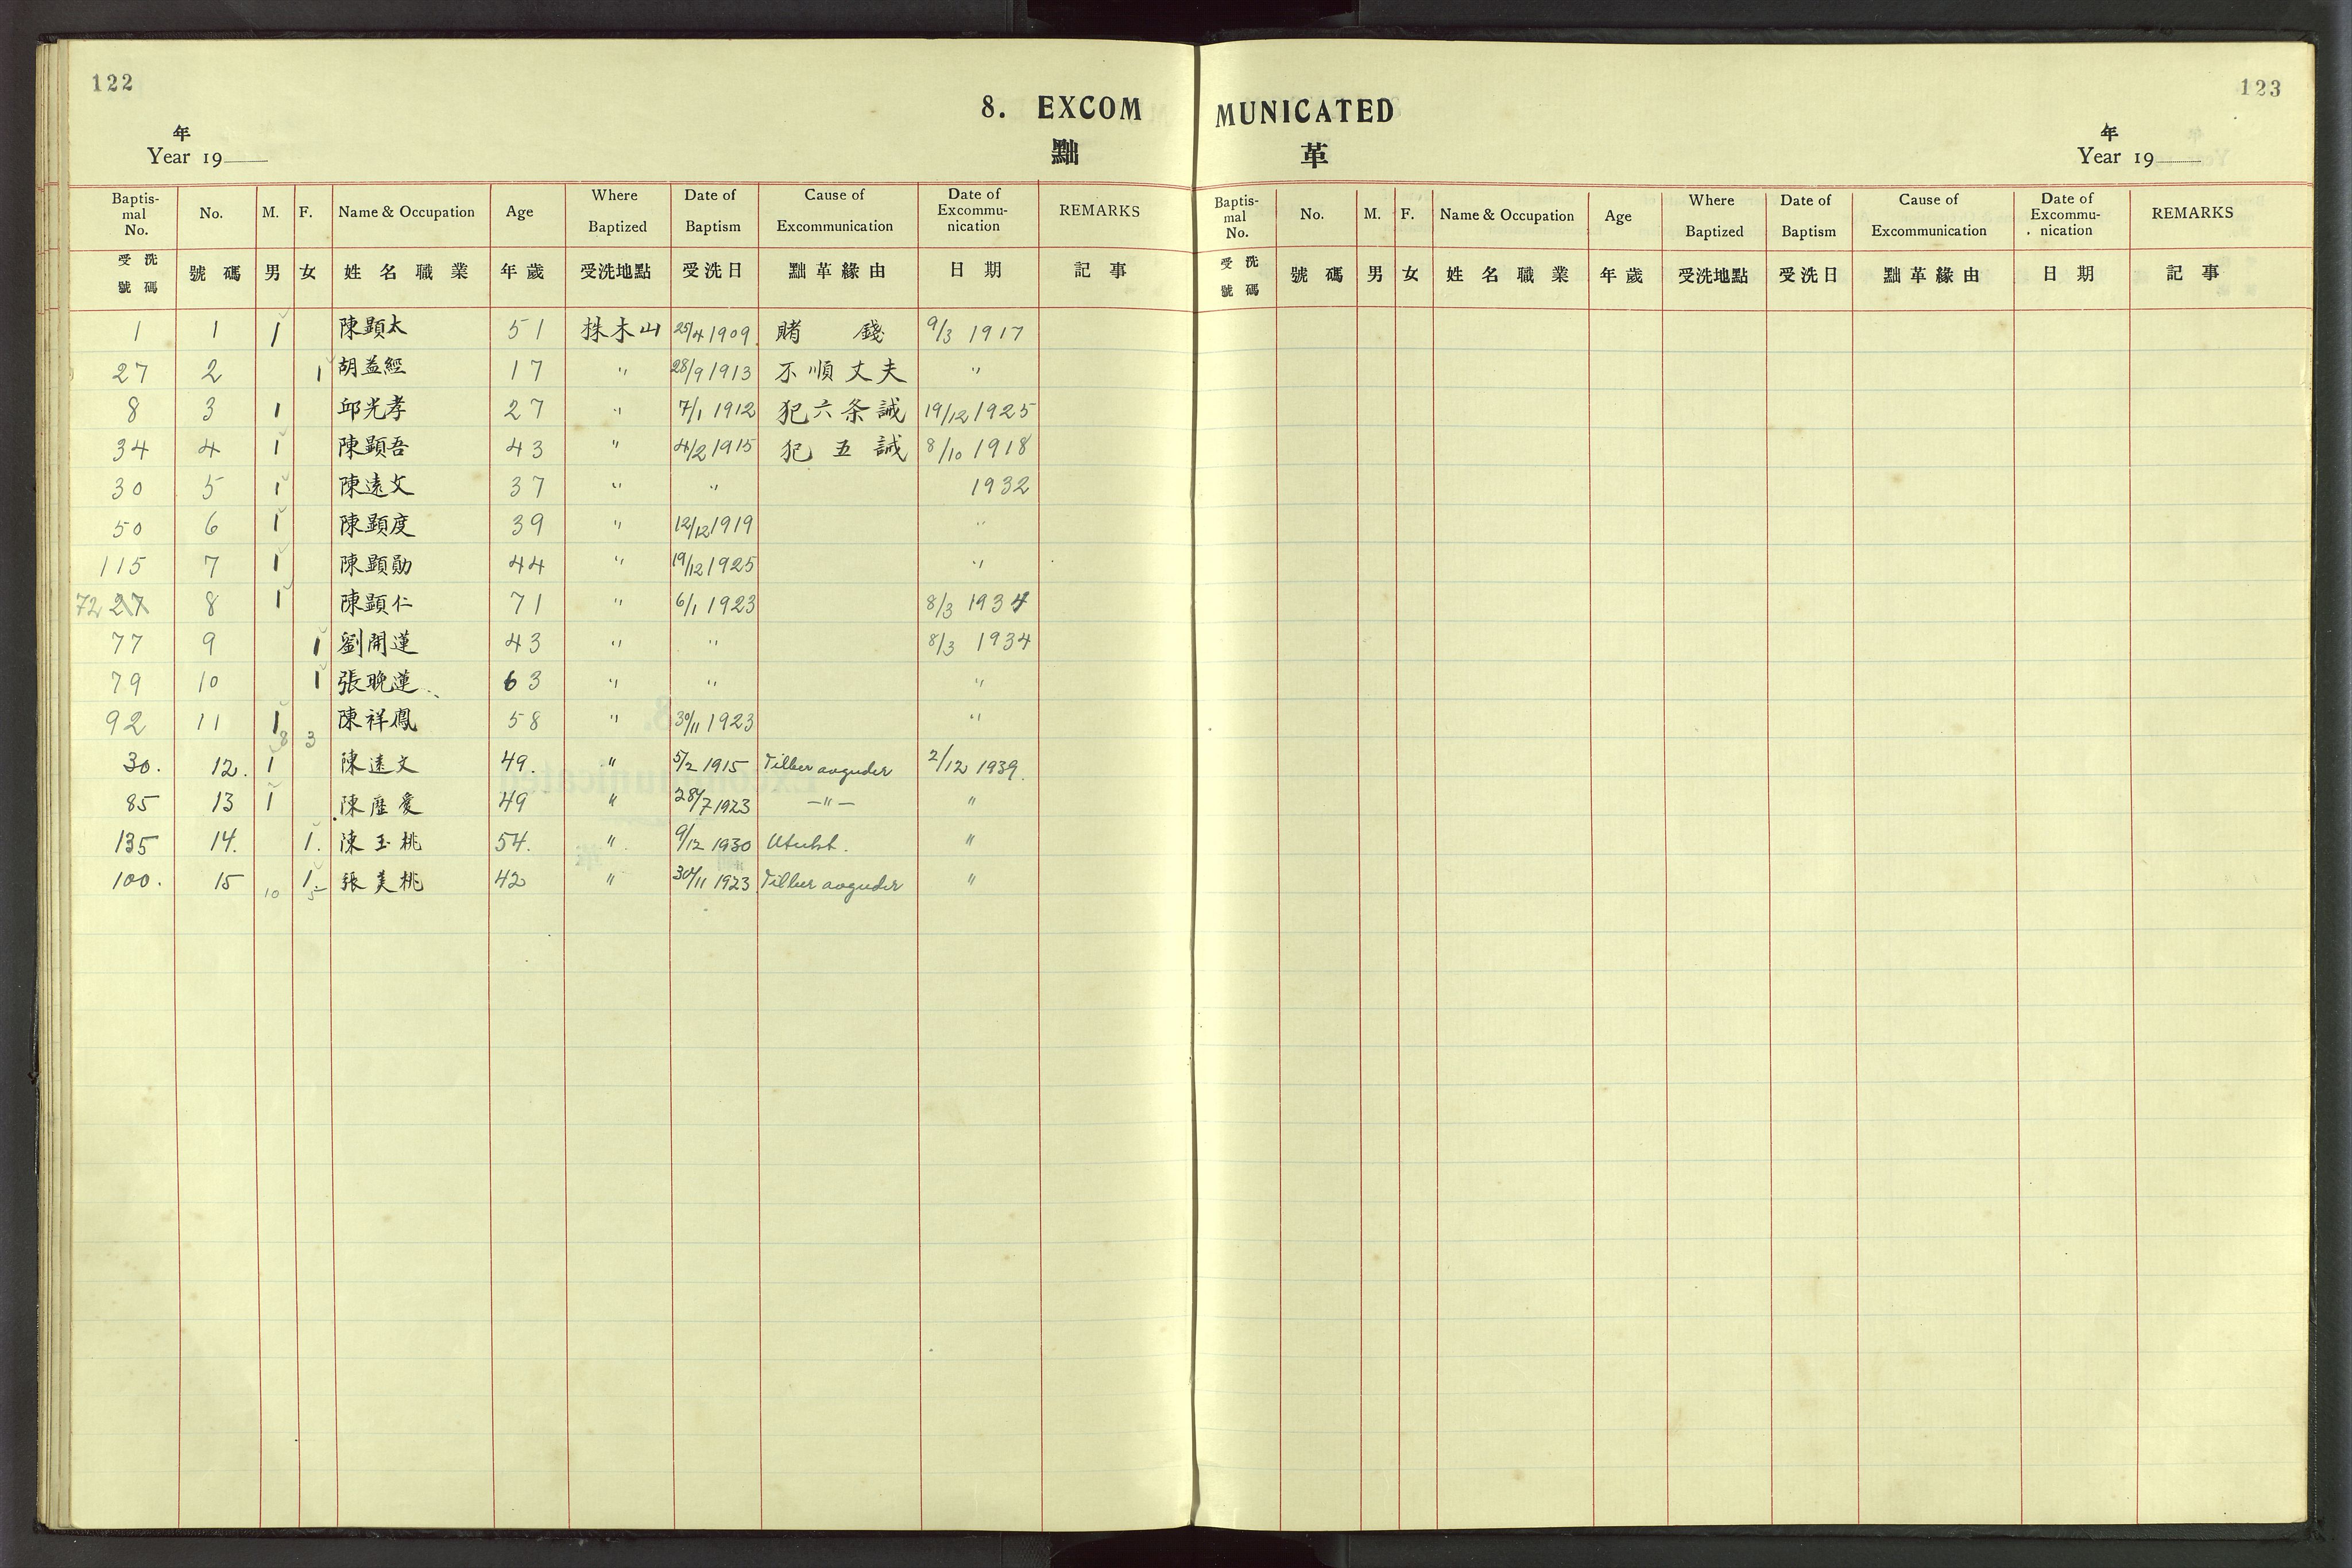 122
123
8. EXCOMMUNICATED
黜 革
年
Year 19
年
Year 19
Baptis-mal No. No. M. F. Name & Occupation Age Where Baptized Date of Baptism Cause of Excommunication Date of Excommu-nication REMARKS
受洗號碼 號碼 男 女 姓名職業 年歲 受洗地點 受洗日 黜革緣由 日期 記事
1 1 1 陳顯太 51 株木山 25/4 1909. 賭錢 9/3 1917
27 2 1 胡益經 17 " 28/9 1913 不順丈夫 "
8 3 1 邱光孝 27 " 7/1 1912 犯六条誡 19/12 1925
34 4 1 陳顯吾 43 " 4/2 1915 犯五誡 8/10 1918
30 5 1 陳遠文 37 " " 1932
50 6 1 陳顯度 39 " 12/12 1919 "
115 7 1 陳顯勛 44 " 19/12 1925 "
72 27 8 1 陳顯仁 71 " 6/1 1923 8/3 1934
77 9 1 劉開蓮 43 " " 8/3 1934
79 10 1 張晚蓮 63 " " "
92 11 1 陳祥鳳 58 " 30/11 1923 "
8 3
30. 12. 1 陳遠文 49. " 5/2 1915 Tilber avguder 2/12 1939.
85 13 1 陳歷愛 49 " 28/7 1923 —"— "
135 14. 1. 陳玉桃 54. " 9/12 1930 Utukt. "
100. 15 1. 張美桃 42 " 30/11 1923 Tilber avguder "
10 5
Baptis-mal No. No. M. F. Name & Occupation Age Where Baptized Date of Baptism Cause of Excommunication Date of Excommu-nication REMARKS
受洗號碼 號碼 男 女 姓名職業 年歲 受洗地點 受洗日 黜革緣由 日期 記事